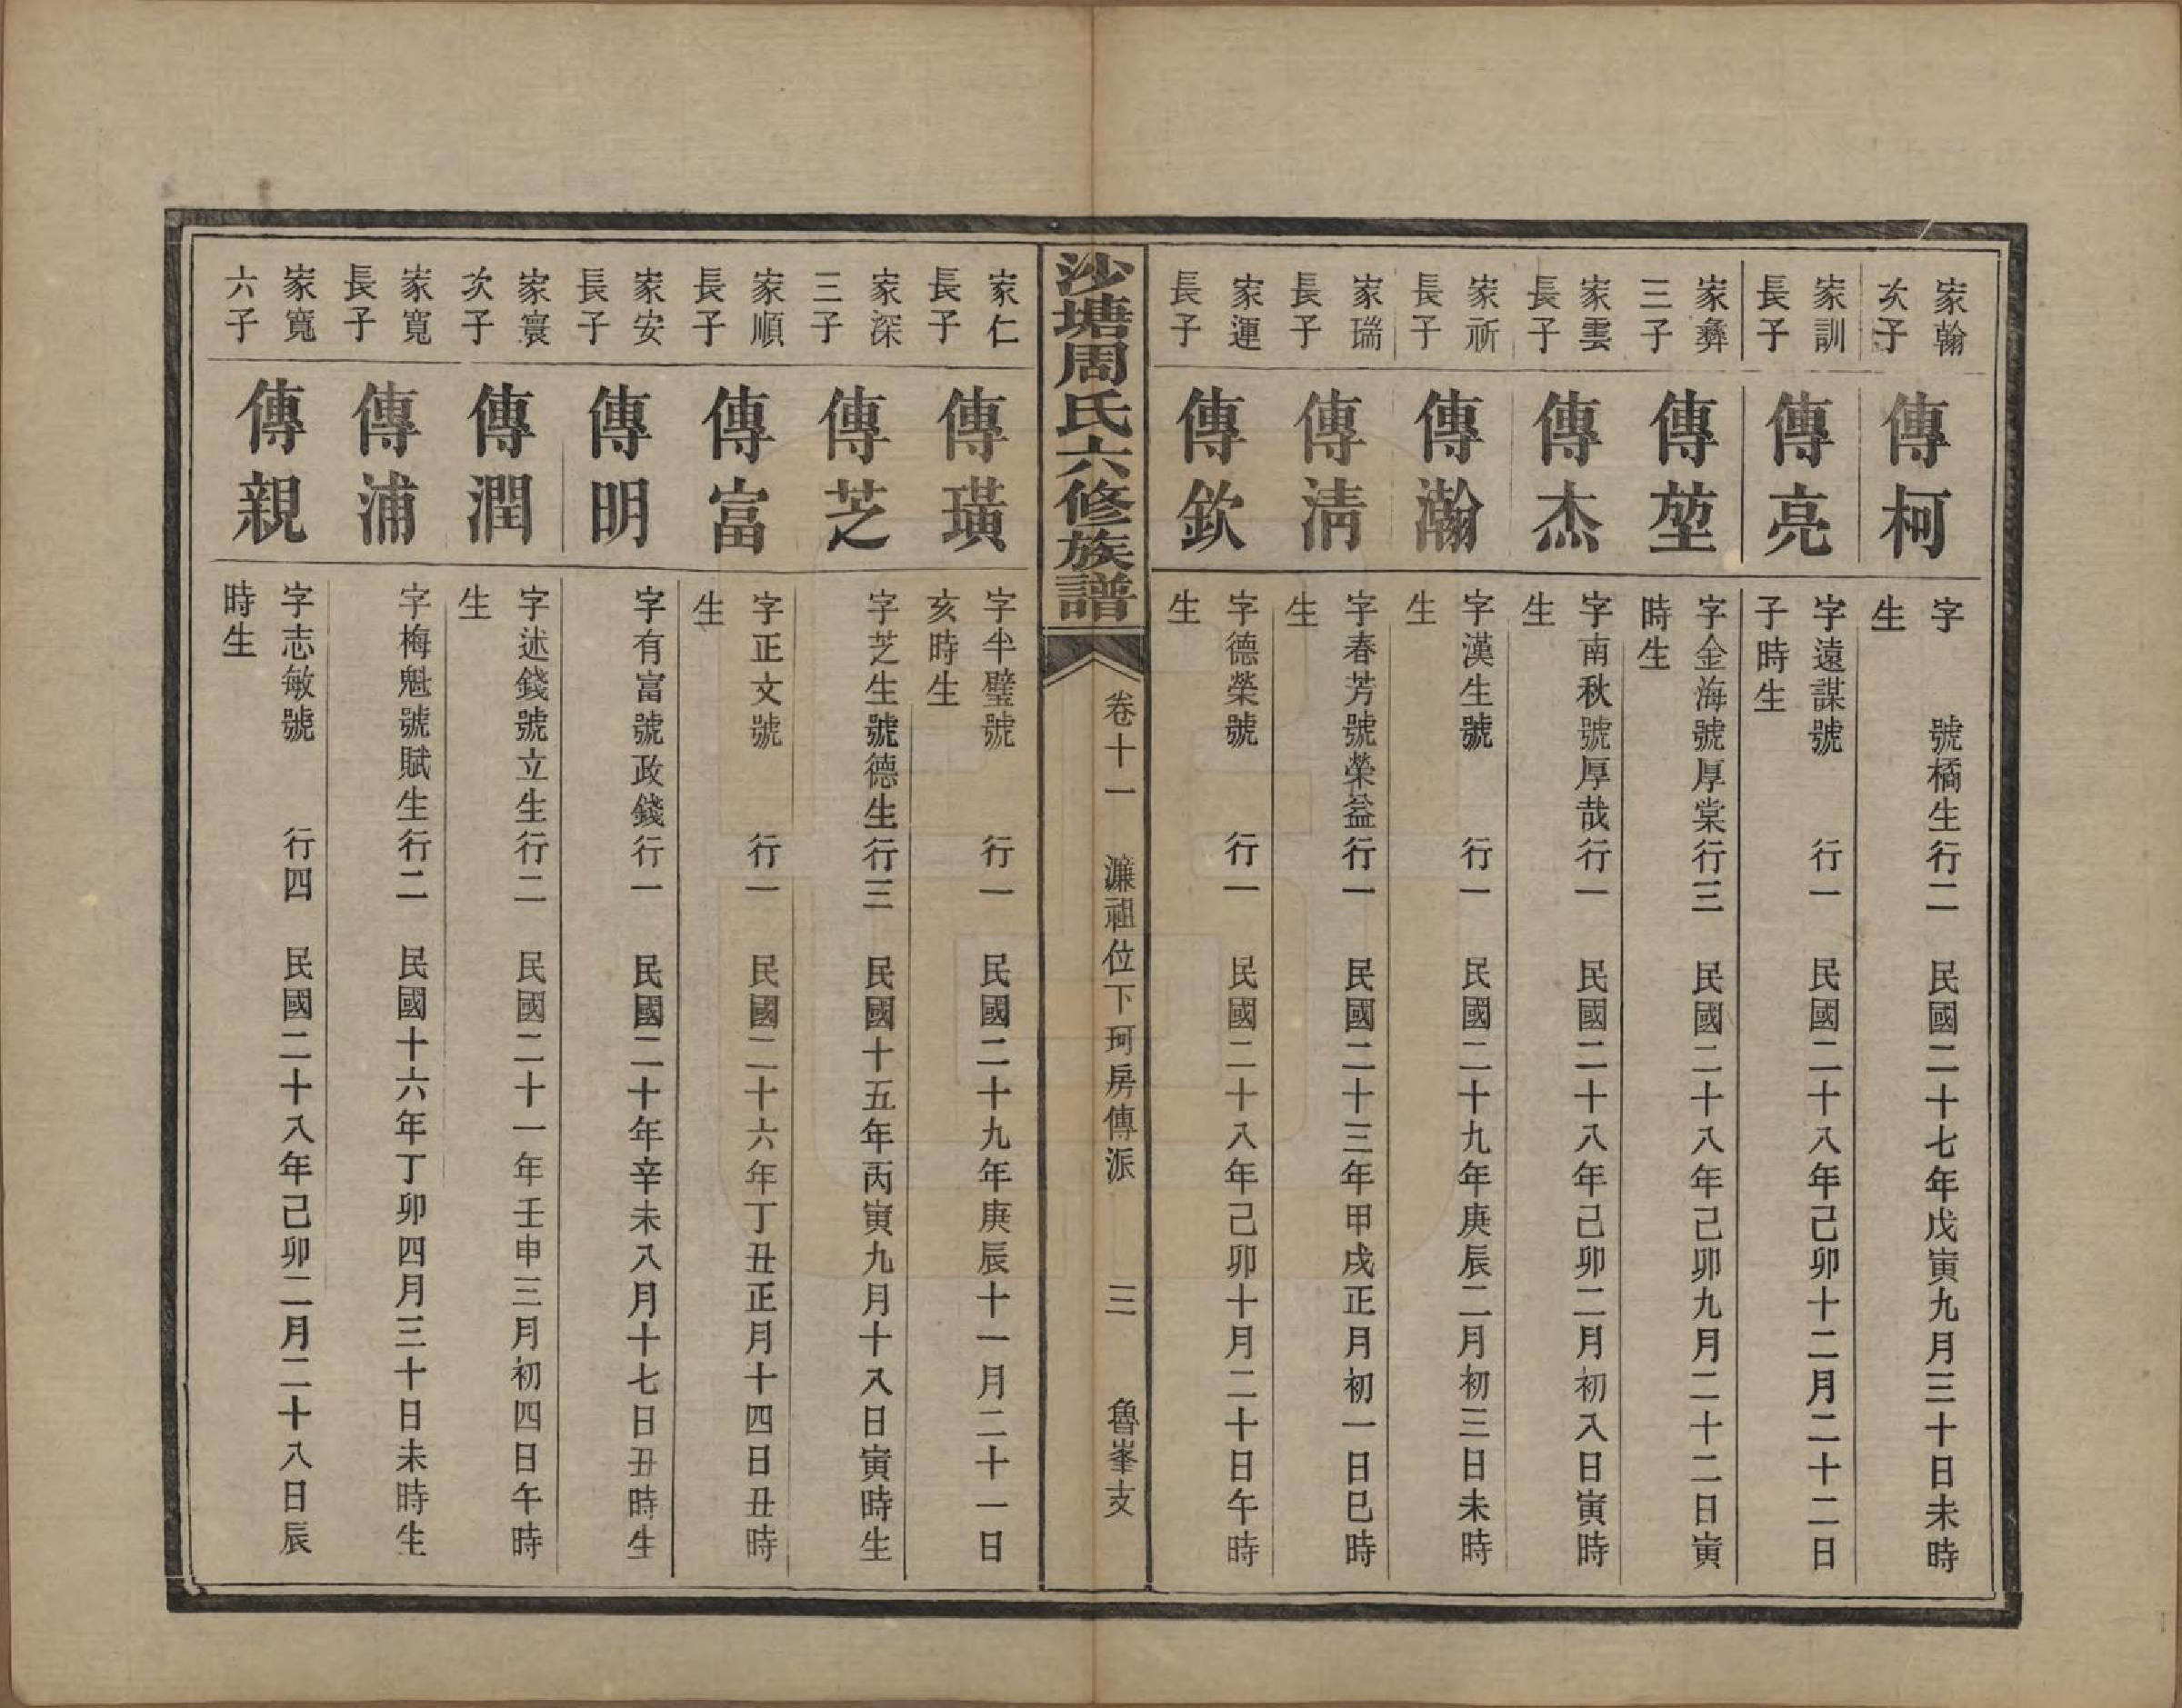 家翰
次子
傳柯
字　　號橘生行二　民國二十七年戊寅九月三十日未時
生
家訓
長子
傳亮
字遠謀號　　行一　民國二十八年己卯十二月二十二日
子時生
家彝
三子
傳堃
字金海號厚棠行三　民國二十八年己卯九月二十二日寅
時生
家雲
長子
傳杰
字南秋號厚哉行一　民國二十八年己卯二月初八日寅時
生
家祈
長子
傳瀚
字漢生號　　行一　民國二十九年庚辰二月初三日未時
生
家瑞
長子
傳清
字春芳號榮益行一　民國二十三年甲戌正月初一日巳時
生
家運
長子
傳欽
字德榮號　　行一　民國二十八年己卯十月二十日午時
生
沙塘周氏六修族譜
卷十一　濂祖位下珂房傳派　三　魯峯支
家仁
長子
傳璜
字半璧號　　行一　民國二十九年庚辰十一月二十一日
亥時生
家深
三子
傳芝
字芝生號德生行三　民國十五年丙寅九月十八日寅時生
家順
長子
傳富
字正文號　　行一　民國二十六年丁丑正月十四日丑時
生
家安
長子
傳明
字有富號政錢行一　民國二十年辛未八月十七日丑時生
家寰
次子
傳潤
字述錢號立生行二　民國二十一年壬申三月初四日午時
生
家寬
長子
傳浦
字梅魁號賦生行二　民國十六年丁卯四月三十日未時生
家寬
六子
傳親
字志敏號　　行四　民國二十八年己卯二月二十八日辰
時生